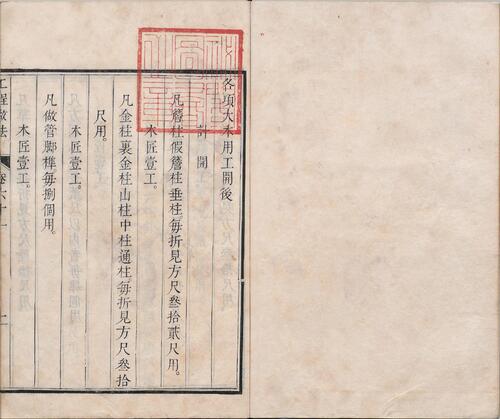 各項大木用工開後
計開
凡簷柱假簷柱垂柱每折見方尺叄拾貳尺用。
木匠壹工。
凡金柱裏金柱山柱中柱通柱每折見方尺叄拾
尺用。
木匠壹工。
凡做管脚榫每捌個用。
木匠壹工。
工程做法
卷六十一